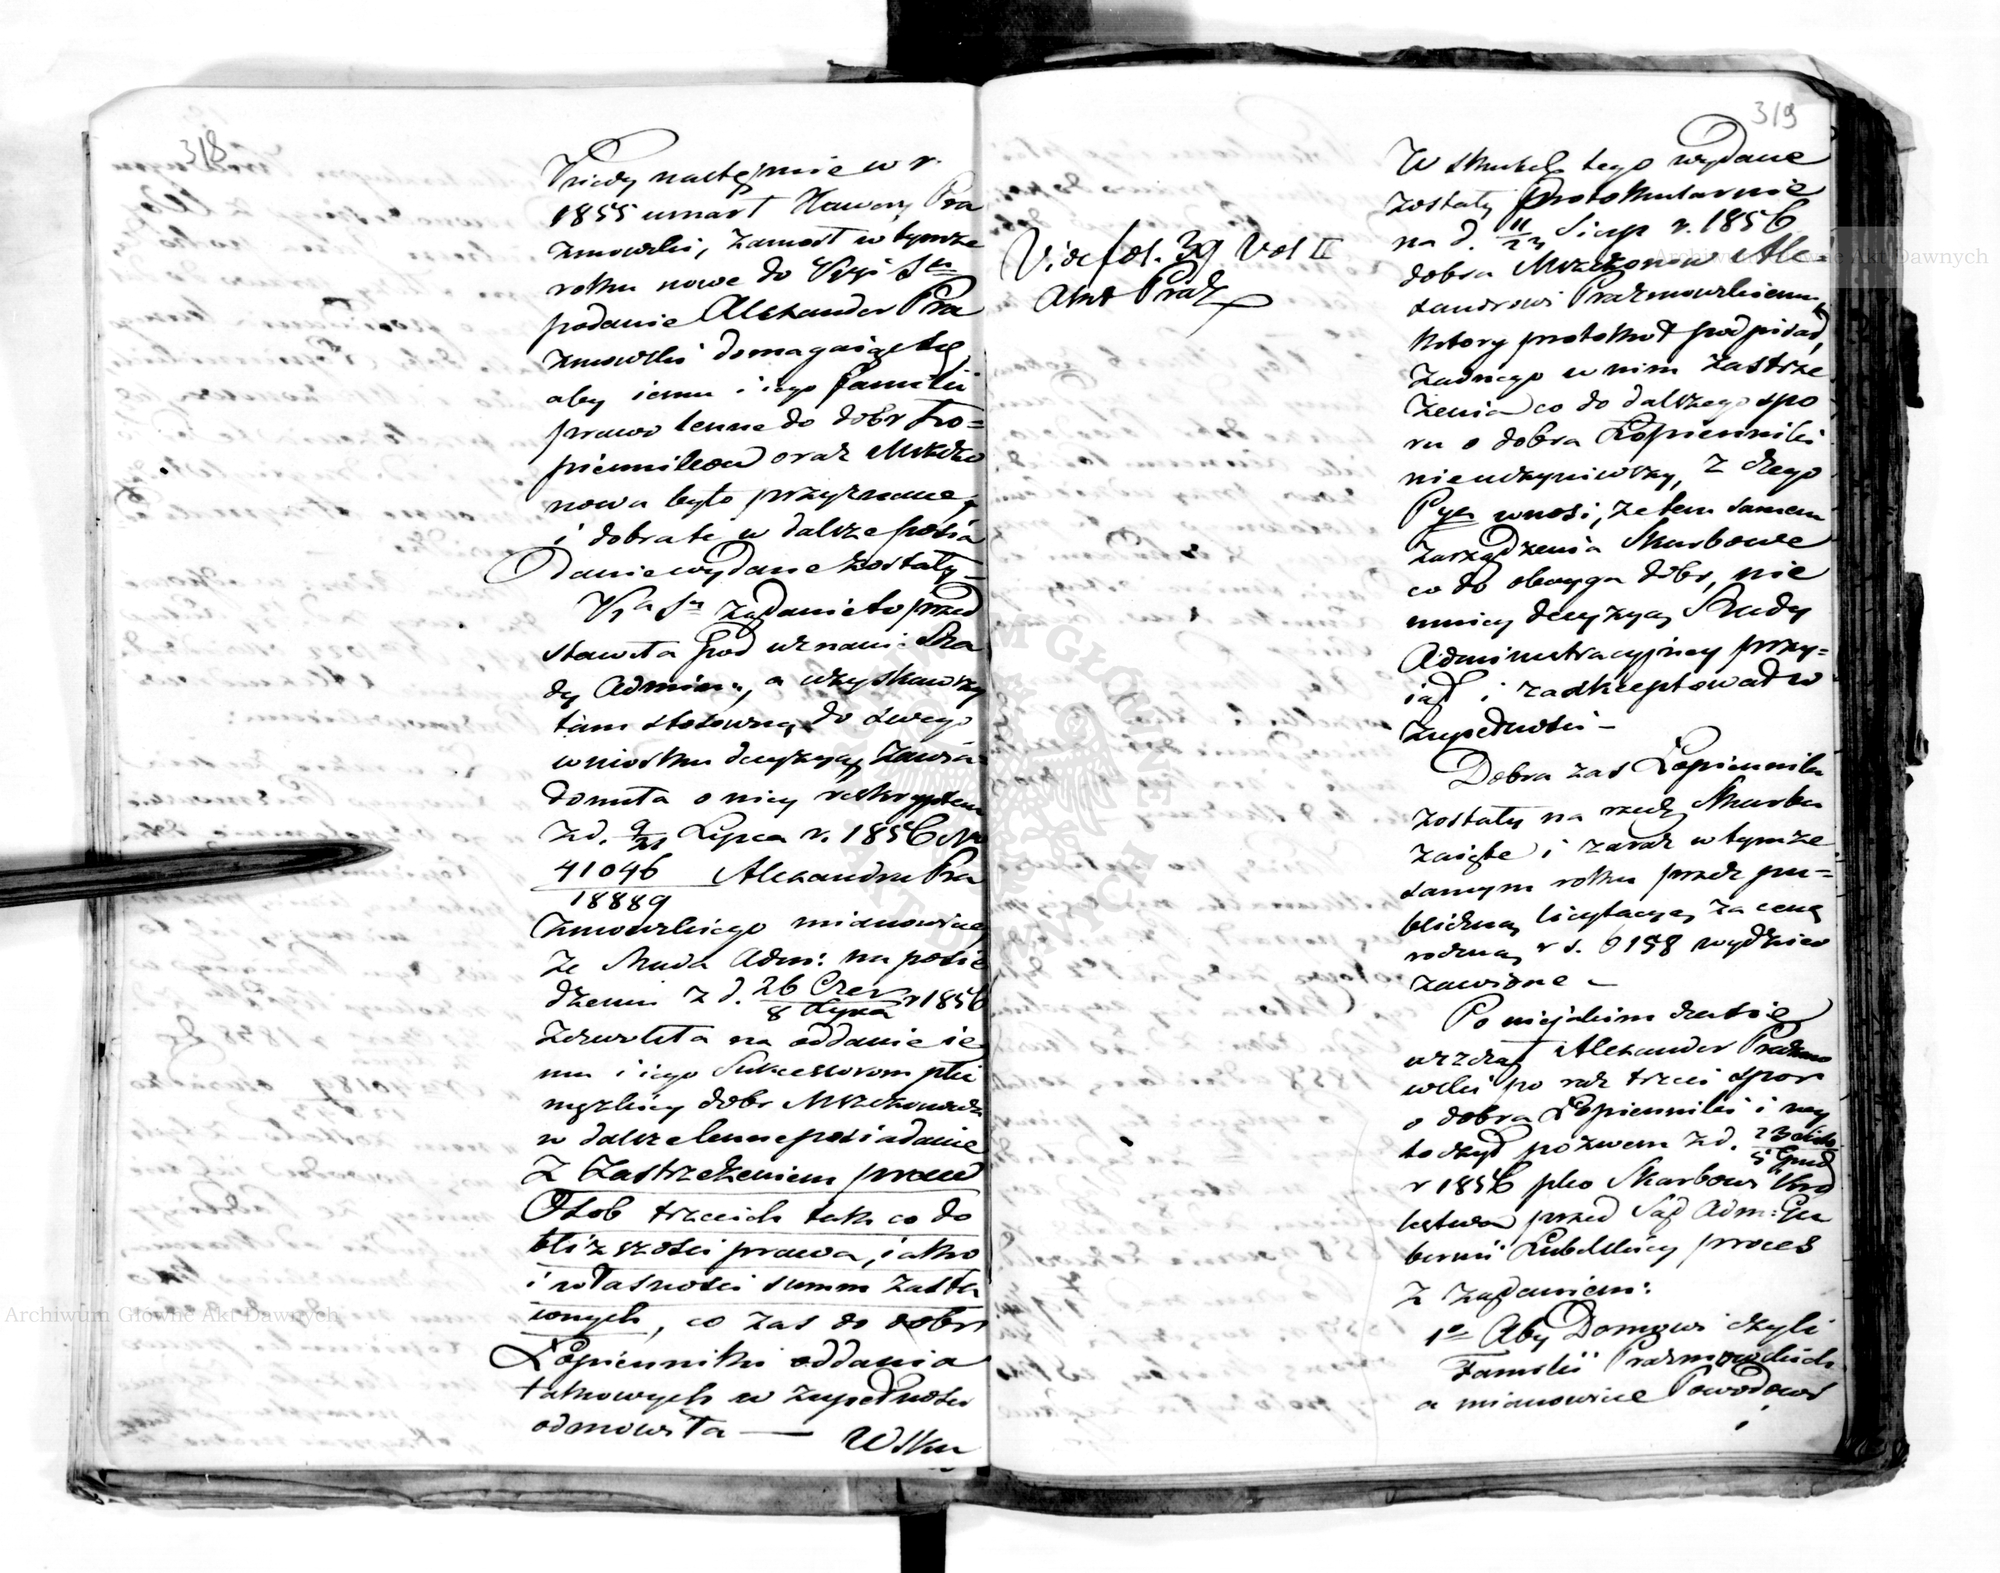 318
Kiedy następnie w r.
1855 umarł Xawery Pra
zmowski, zaniósł w tymże
roku nowe do Kyi Sn
podanie Alexander Pra
zmowski domagaiąc się,
aby iemu i iego familii
prawo lenne do dóbr Ło=
piennikow oraz Mszczo
nowa było przyznane,
i dobra te w dalsze posia
danie wydane zostały –
Kya Sn żądanie to przed
stawiła pod uznani: Ra
dy Admin:, a uzyskawszy
tam stosowną do swego
wniosku decyzyą, zawia
domiła o niey reskryptem
z d. 9/21 Lipca r. 1856 No
41046/18889 Alexandra Pra
zmowskiego mianowicie,
że Rada Adm: na posie
dzeniu z d. 26 Czer/8 Lipca r 1856
zezwoliła na oddanie ie
mu i iego Sukcessorom płci
męzkiey dobr Mszczonowa
w dalsze lenne posiadanie
z zastrzeżeniem praw
Osób trzecich tak co do
bliższości prawa, iako
i własności summ zasta
wnych, co zaś do dobr
Łopienniki oddania
takowych w zupełności
odmówiła — W sku
319
Vide fol. 39 Vol II
Akt Praż
W skutek tego wydane
zostały protokularnie
na d. 11/23 Sierp r. 1856
dobra Mszczonow Ale-
xandrowi Prażmowskiemu,
który protokuł podpisał,
żadnego w nim zastrze
żenia co do dalszego spo
ru o dobra Łopienniki
nieuczyniwszy, z czego
Pya wnosi, że tem samem
zarządzenia Skarbowe
co do obuyga dóbr, nie
mniey decyzyą Rady
Administracyjney przy=
iął i zaakceptował w
zupełności –
Dobra zaś Łopienniki
zostały na rzecz Skarbu
zaięte i zaraz w tymże
samym roku przez pu=
bliczną licytacyą za cenę
roczną r s. 6158 wydzier
zawione –
Po niejakim czasie
wszczął Alexander Prażmo
wski po raz trzeci spor
o dobra Łopienniki i wy
toczył pozwem z d. 23 Listo/5 Grud
r 1856 pko Skarbowi Kró
lestwa przed Sąd Adm: Gu
bernii Lubelskiey proces
z żądaniem:
1o Aby Domowi czyli
Familii Prażmowskich
a mianowicie Powodowi
i
Archiwum Główne Akt Dawnych
Archiwum Główne Akt Dawnych
ARCHIWUM GŁÓWNE AKT DAWNYCH